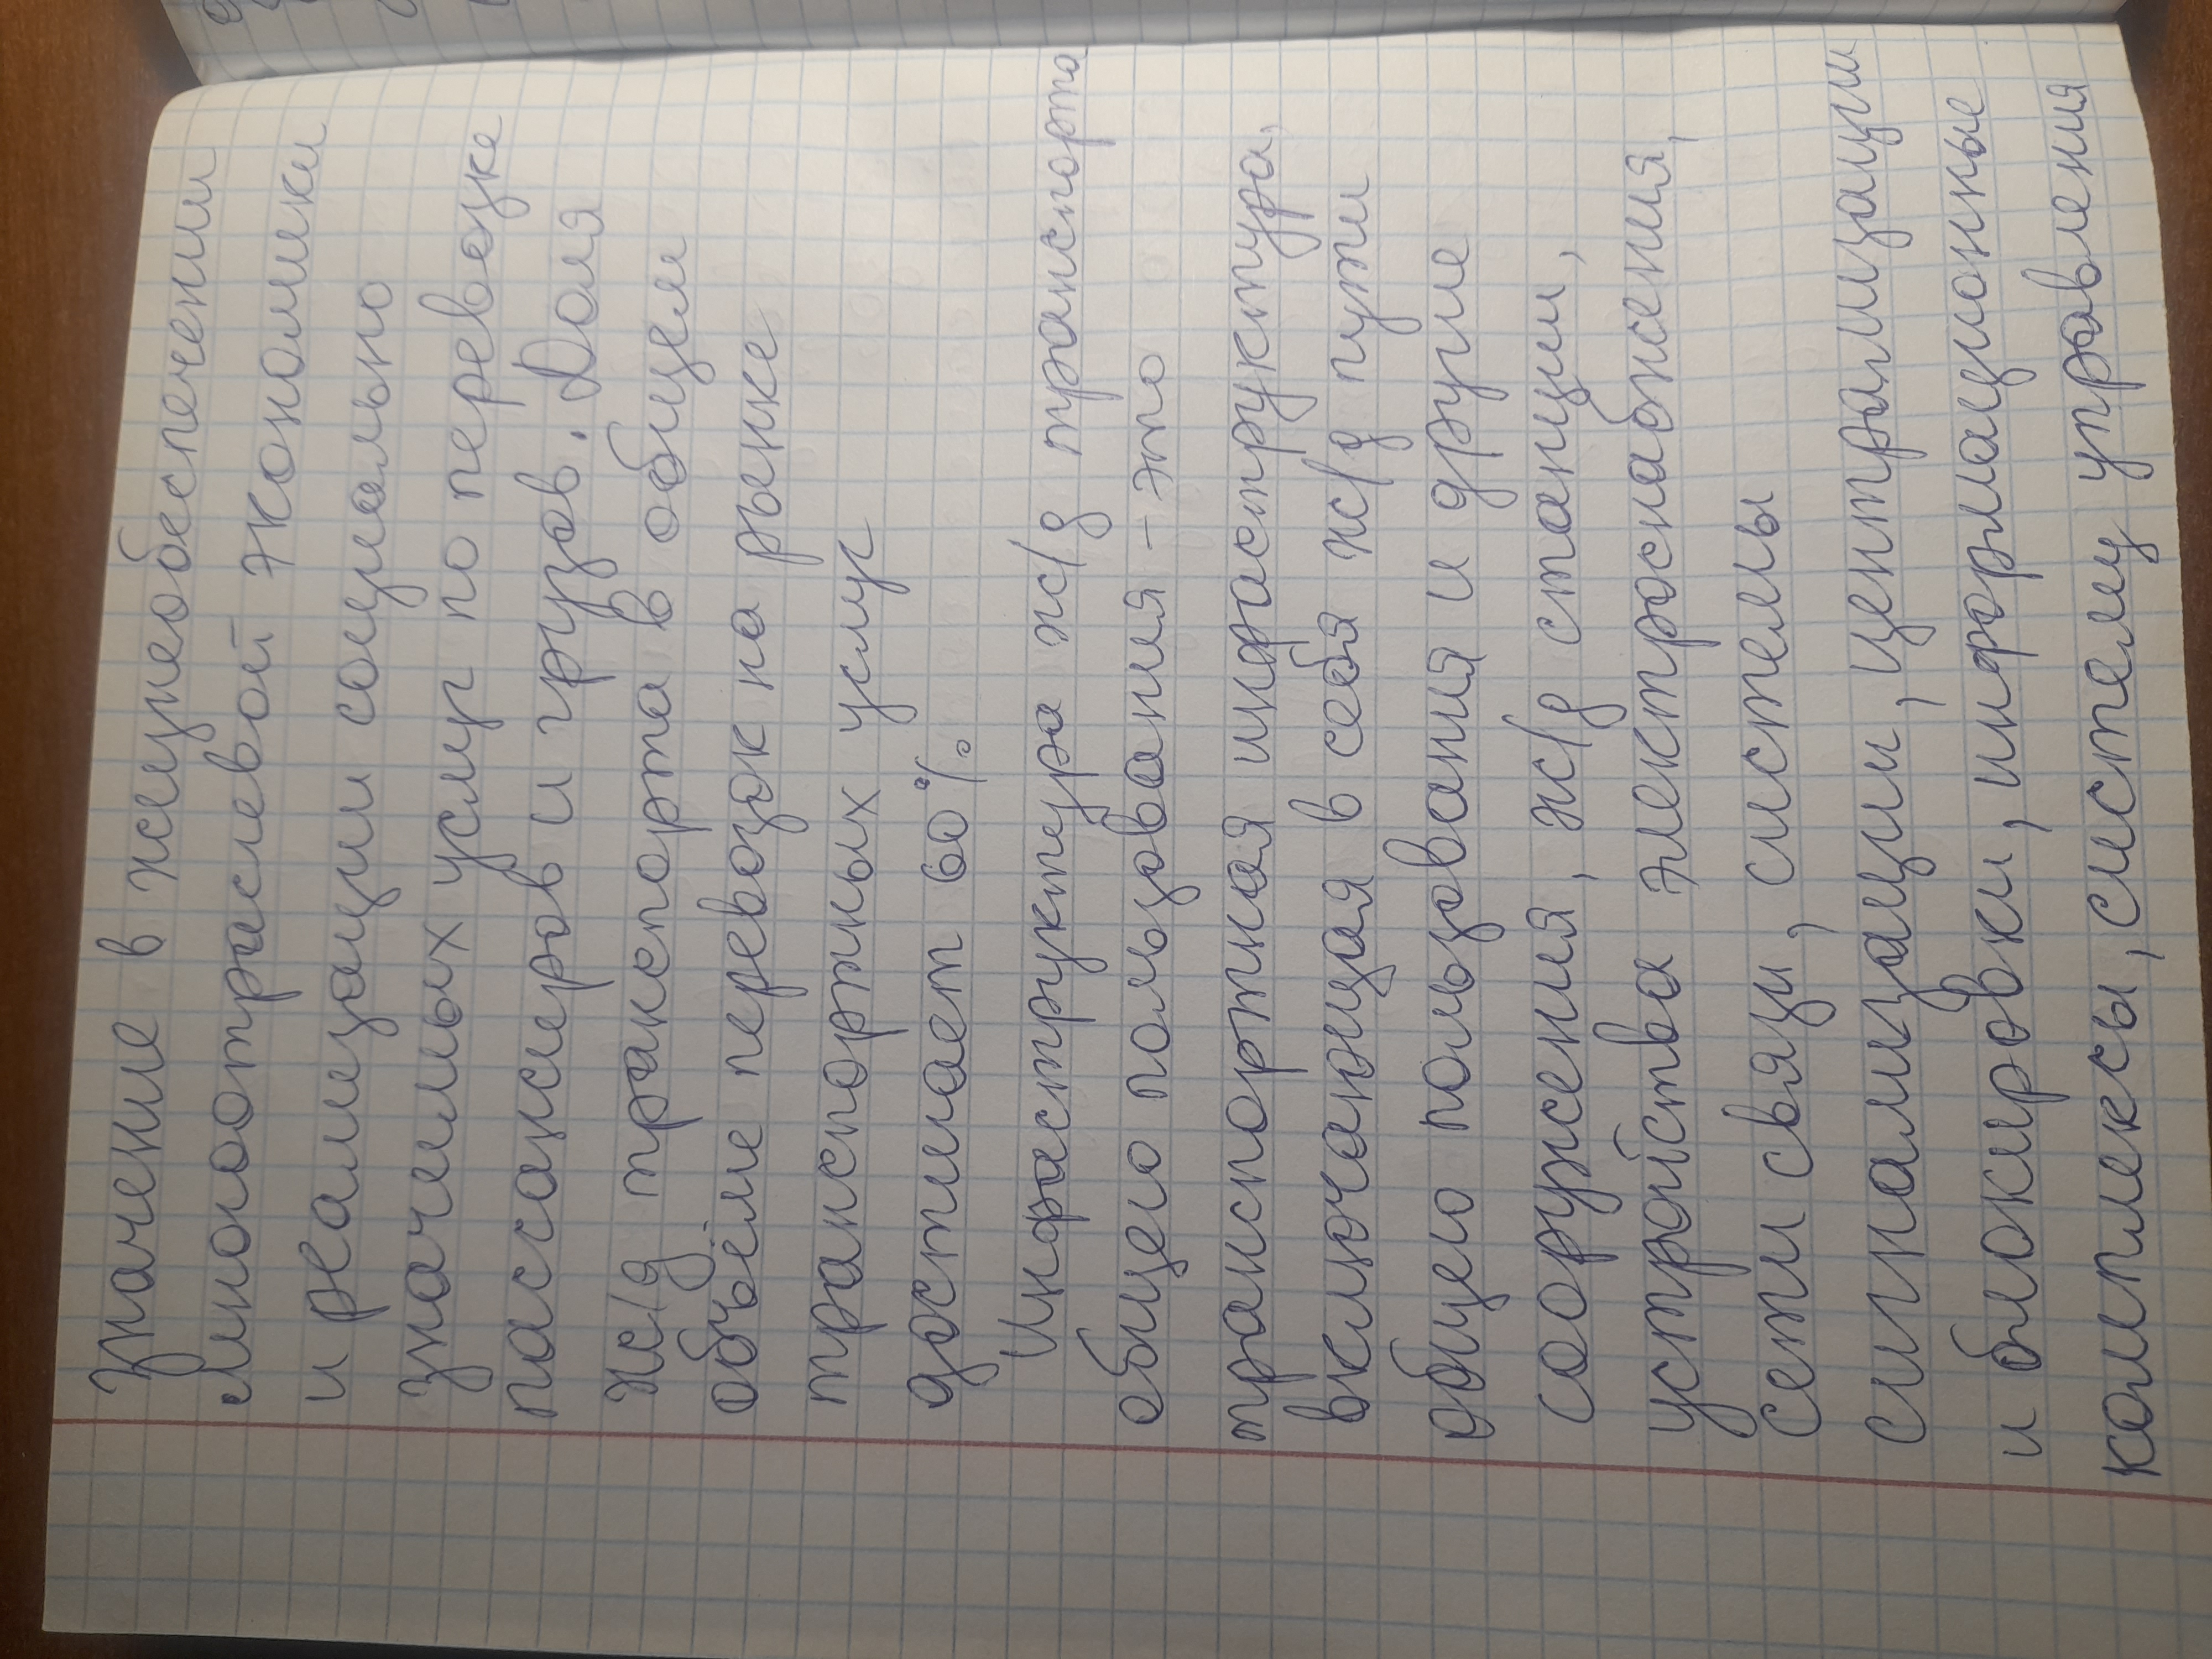 значение в жизнеобеспечении
многоотраслевой экономики
и реализации социально
значемых услуг по перевозке
пассажиров и грузов. Доля
ж/д транспорта в общем
объёме перевозок на рынке
транспортных услуг
достигает 60%.
Инфраструктура ж/д транспорта
общего пользования - это
транспортная инфраструктура,
включающая в себя ж/д пути
общего пользования и другие
сооружения, ж/д станции,
устройства электроснабжения,
сети связи, системы
сигнализации, централизации
и блокировки, информационные
комплексы, систему управления